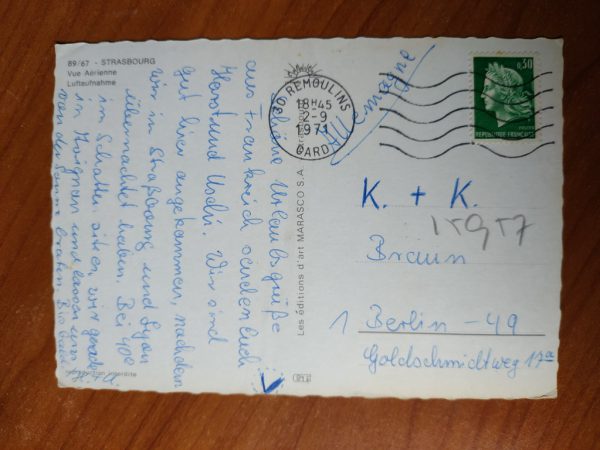 89/67 - STRASBOURG
Vue Aérienne
Luftaufnahme
Schöne Urlaubsgrüße
aus Frankreich senden Euch
Horst und Uschi. Wir sind
gut hier angekommen, nachdem
wir in Straßburg und Lyon
übernachtet haben. Bei 40°
im Schatten sitzen wir gerade
in Avignon und lassen uns
von der Sonne braten. Bis bald
Reproduction interdite
Les éditions d'art MARASCO S.A.
30 REMOULINS
18H45
2-9
1971
GARD
Allemagne
0,30
REPUBLIQUE FRANÇAISE
K. + K.
Braun
1 Berlin - 49
Goldschmidtweg 17a